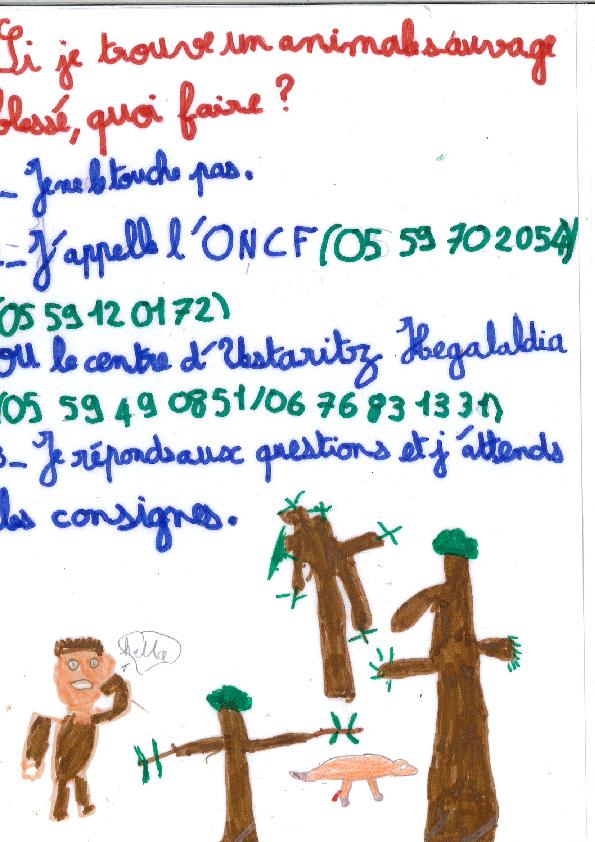 Si je trouve un animal sauvage
blessé, quoi faire ?
_ Je ne le touche pas.
_ J'appelle l'ONCF (05 59 70 20 54)/
(05 59 12 01 72)
ou le centre d'Ustaritz Hegalaldia
(05 59 49 08 51/06 76 83 13 31)
3_ Je réponds aux questions et j'attends
les consignes.